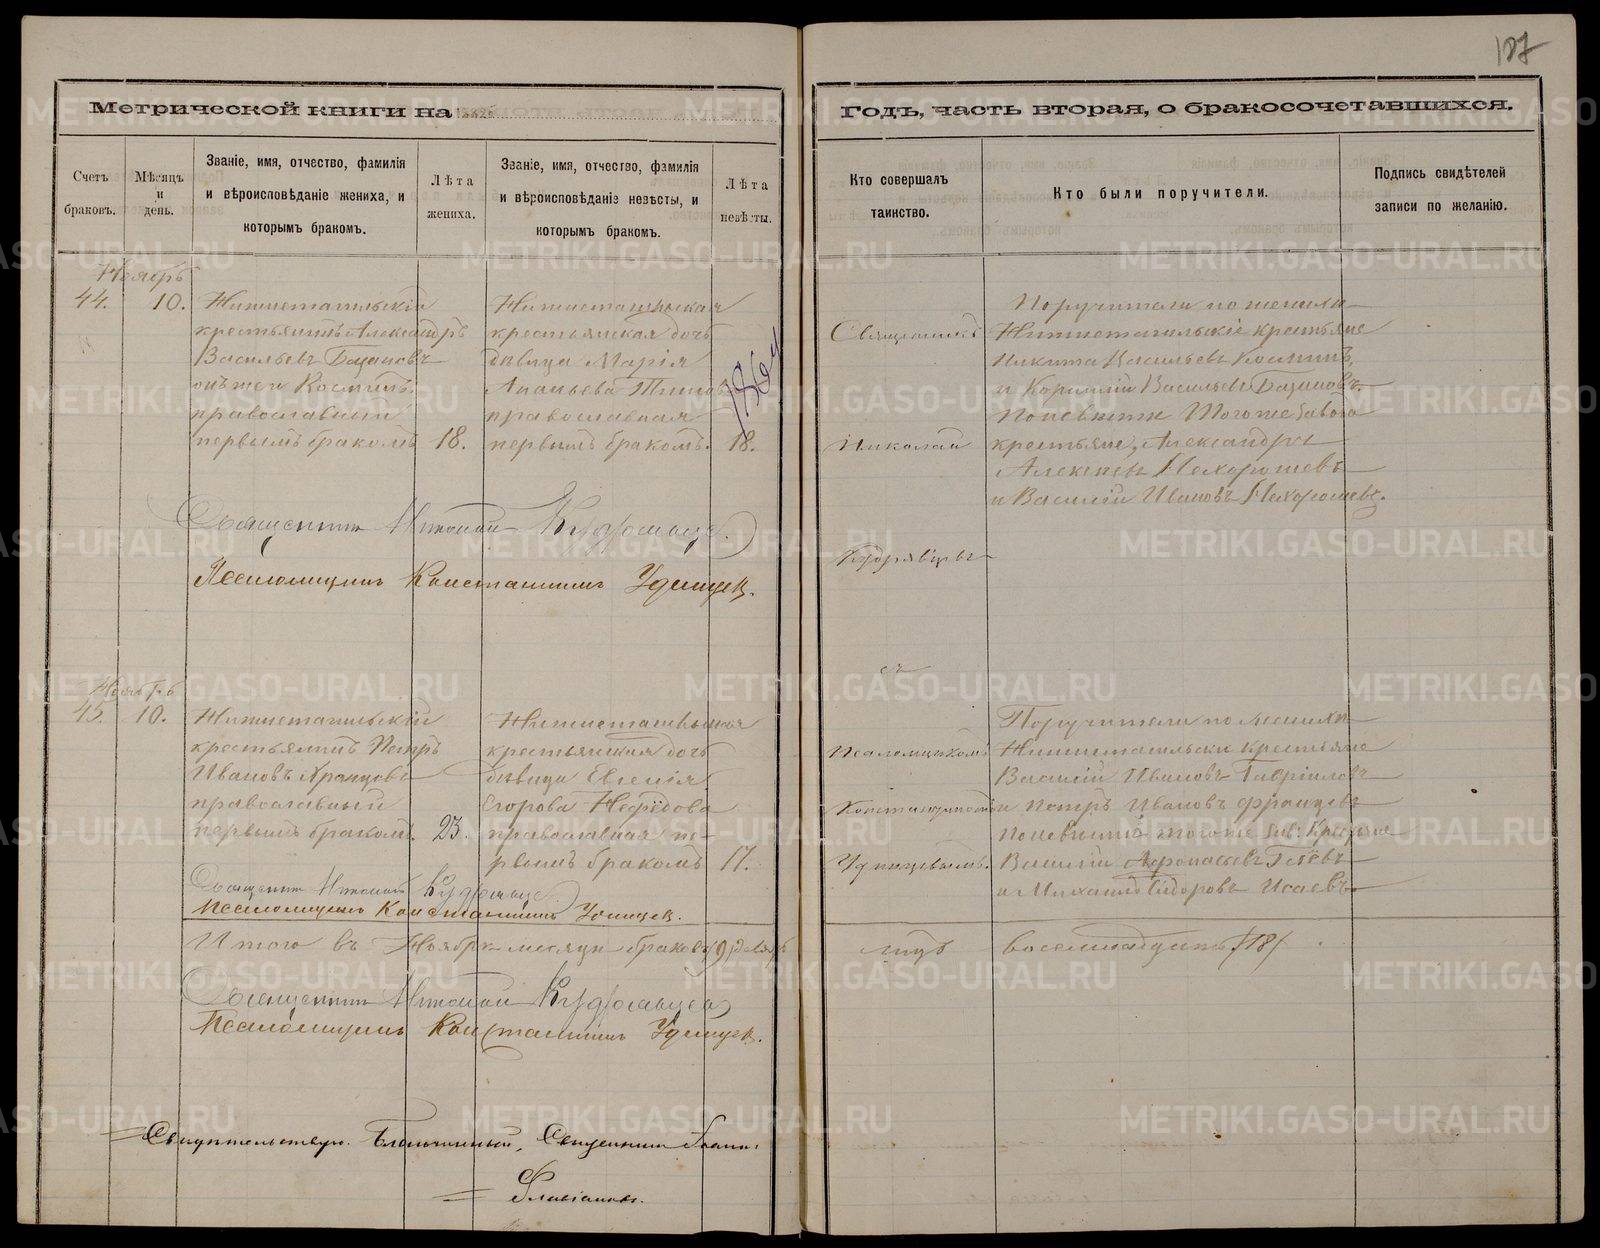 127
Метрической книги на
Годъ, часть вторая, о бракосочетавшихся.
Счетъ браковъ.
Мѣсяцъ и день.
Званіе, имя, отчество, фамилія и вѣроисповѣданіе жениха, и которымъ бракомъ.
Лѣта жениха.
Званіе, имя, отчество, фамилія и вѣроисповѣданіе невѣсты, и которымъ бракомъ.
Лѣта невѣсты.
Кто совершалъ таинство.
Кто были поручители.
Подпись свидѣтелей записи по желанію.
Ноябрь
44.
10.
Нижнетагильскій
крестьянинъ Александръ
Васильевъ
православный
первымъ бракомъ
18.
Нижнетагильская
крестьянская дочь
дѣвица Марія
православная
первымъ бракомъ.
18.
Священникъ
Николай
Кудрявцевъ
Поручители по женихѣ
Нижнетагильскіе крестьяне
Никита Васильевъ
и Корнилій Васильевъ
По невѣстѣ того же завода
крестьяне, Александръ
Алексѣевъ Нехорошевъ
и Василій Ивановъ Нехорошевъ.
Священникъ Николай Кудрявцевъ.
Псаломщикъ Константинъ Удинцевъ.
Ноябрь
45.
10.
Нижнетагильскій
крестьянинъ Петръ
Ивановъ
православный
первымъ бракомъ.
23.
Нижнетагильская
крестьянская дочь
дѣвица Евгенія
Егорова Нефедова
православная пе-
рвымъ бракомъ
17.
съ
Псаломщикомъ
Константиномъ
Удинцевымъ.
Поручители по женихѣ
Нижнетагильскіе крестьяне
Василій Ивановъ Гавриловъ
и Петръ Ивановъ
по невѣстѣ того же зав: крестьяне
Василій
и Михаилъ Сидоровъ Исаевъ
Священникъ Николай Кудрявцевъ
Псаломщикъ Константинъ Удинцевъ.
Итого въ Ноябрѣ мѣсяцѣ браковъ
восемнадцать /18/
Священникъ Николай Кудрявцевъ
Псаломщикъ Константинъ Удинцевъ.
Свидѣтельствую. Благочинный, Священникъ
Флавіановъ.
METRIKI.GASO-URAL.RU